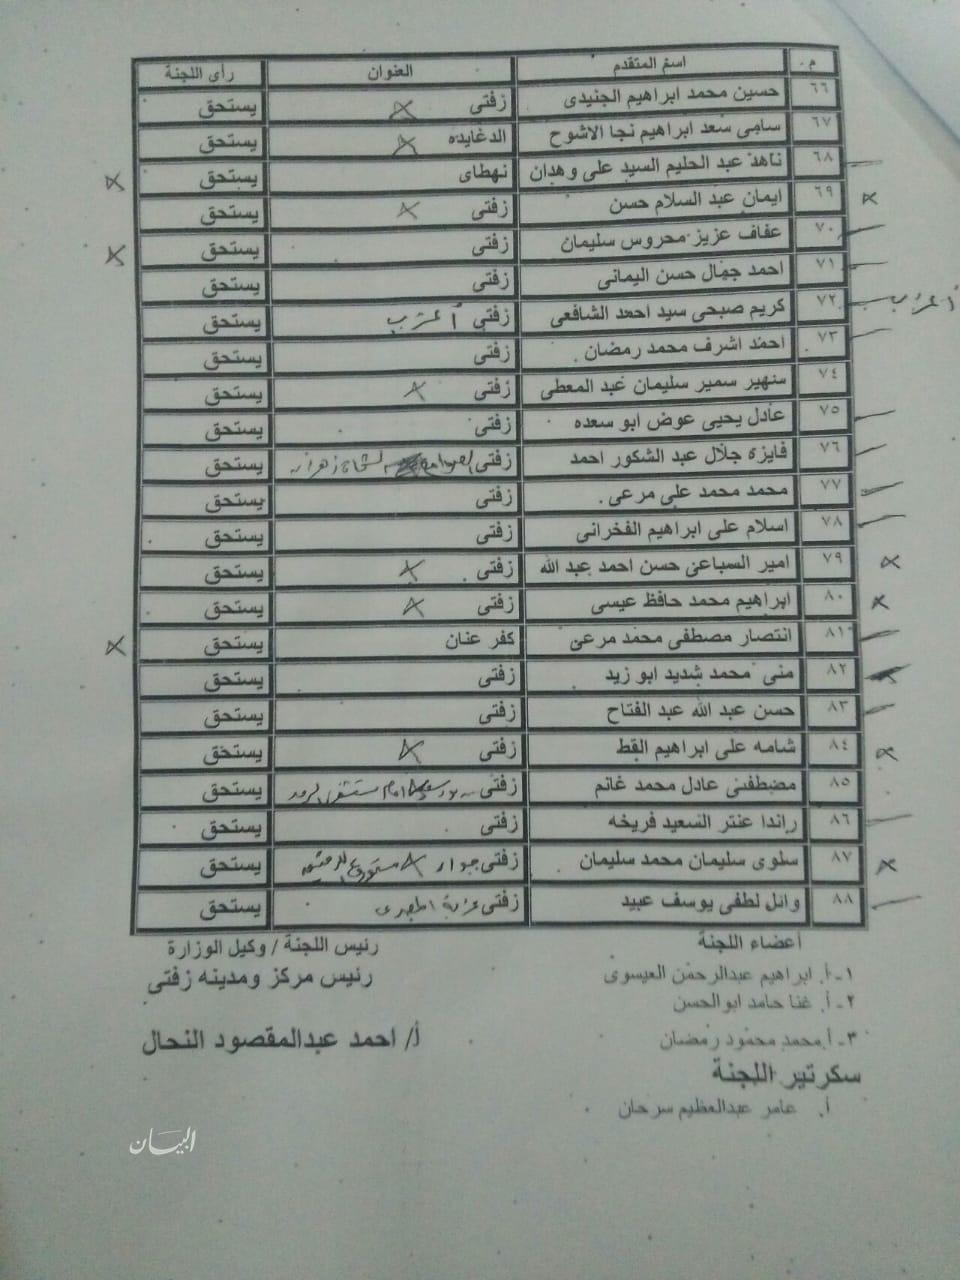 م اسم المتقدم العنوان رأى اللجنة
٦٦ حسين محمد ابراهيم الجنيدى زفتى يستحق
٦٧ سامى سعد ابراهيم نجا الاشوح الدغايده يستحق
٦٨ ناهد عبد الحليم السيد على وهدان نهطاى يستحق
٦٩ ايمان عبد السلام حسن زفتى يستحق
٧٠ عفاف عزيز محروس سليمان زفتى يستحق
٧١ احمد جمال حسن اليمانى زفتى يستحق
٧٢ كريم صبحى سيد احمد الشافعى زفتى يستحق
٧٣ احمد اشرف محمد رمضان زفتى يستحق
٧٤ سهير سمير سليمان عبد المعطى زفتى يستحق
٧٥ عادل يحيى عوض ابو سعده زفتى يستحق
٧٦ فايزه جلال عبد الشكور احمد زفتى يستحق
٧٧ محمد محمد على مرعى زفتى يستحق
٧٨ اسلام على ابراهيم الفخرانى زفتى يستحق
٧٩ امير السباعى حسن احمد عبد الله زفتى يستحق
٨٠ ابراهيم محمد حافظ عيسى زفتى يستحق
٨١ انتصار مصطفى محمد مرعى كفر عنان يستحق
٨٢ منى محمد شديد ابو زيد زفتى يستحق
٨٣ حسن عبد الله عبد الفتاح زفتى يستحق
٨٤ شامه على ابراهيم القط زفتى يستحق
٨٥ مصطفى عادل محمد غانم زفتى يستحق
٨٦ راندا عنتر السعيد فريخه زفتى يستحق
٨٧ سلوى سليمان محمد سليمان زفتى جوار يستحق
٨٨ وائل لطفى يوسف عبيد زفتى عزبة يستحق
أعضاء اللجنة رئيس اللجنة / وكيل الوزارة
١- أ. ابراهيم عبدالرحمن العيسوى رئيس مركز ومدينه زفتى
٢- أ. غنا حامد ابوالحسن
٣- أ.محمد محمود رمضان أ/ احمد عبدالمقصود النحال
سكرتير اللجنة
أ. عامر عبدالعظيم سرحان
البيان